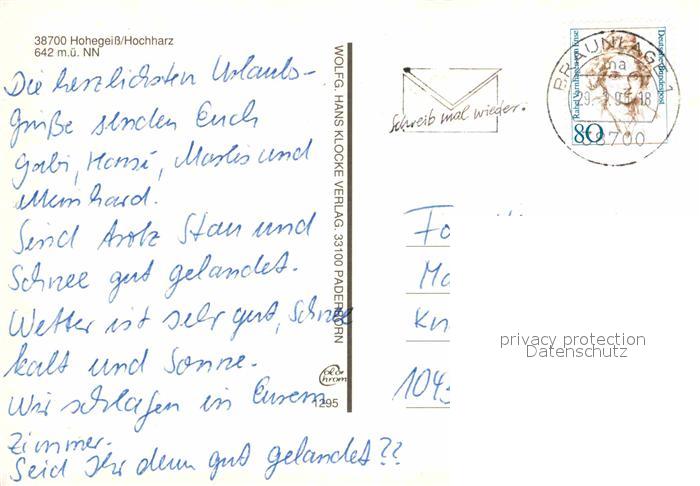 38700 Hohegeiß/Hochharz
642 m.ü. NN
Die herzlichsten Urlaubs-
grüße senden Euch
Gabi, Hansi, Marlis und
Meinhard.
Sind trotz Stau und
Schnee gut gelandet.
Wetter ist sehr gut, Schnee
kalt und Sonne.
Wir schlafen in Eurem
Zimmer.
Seid Ihr denn gut gelandet??
WOLFG. HANS KLOCKE VERLAG 33100 PADERBORN
1295
Schreib mal wieder.
BRAUNLAGE 1
38700
Rahel Varnhagen von Ense
Deutsche Bundespost
80
Fa
Ma
Kn
104
privacy protection
Datenschutz